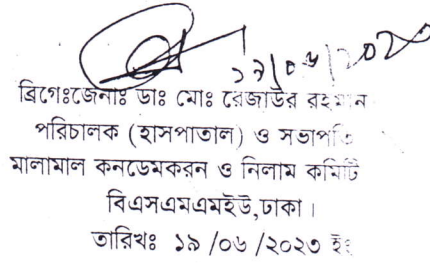 ১৯/০৬/২০২৩
ব্রিগেঃজেনাঃ ডাঃ মোঃ রেজাউর রহমান
পরিচালক (হাসপাতাল) ও সভাপতি
মালামাল কনডেমকরন ও নিলাম কমিটি
বিএসএমএমইউ,ঢাকা।
তারিখঃ ১৯ /০৬ /২০২৩ ইং